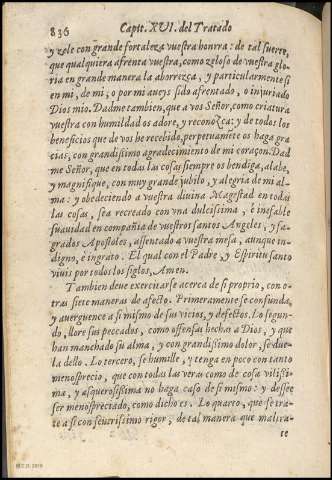 836 Capit. XVI. del Tratado
y zele con grande fortaleza vuestra honrra: de tal suerte,
que qualquiera afrenta vuestra, como zeloso de vuestra glo
ria en grande manera la aborrezca, y particularmente si
en mi, de mi, o por mi aueys sido afrentado, o injuriado
Dios mio. Dadme tambien, que a vos Señor, como criatura
vuestra con humildad os adore, y reconozca: y de todos los
beneficios que de vos he recebido, perpetuamẽte os haga gra
cias, con grandissimo agradecimiento de mi coraçon. Dad
me Señor, que en todas las cosas siempre os bendiga, alabe,
y magnifique, con muy grande jubilo, y alegria de mi al-
ma: y obedeciendo a vuestra diuina Magestad en todas
las cosas, sea recreado con vna dulcissima, e inefable
suauidad en compañia de vuestros santos Angeles, y sa-
grados Apostoles, assentado a vuestra mesa, aunque in-
digno, e ingrato. El qual con el Padre, y Espiritu santo
viuis por todos los siglos, Amen.
Tambien deue exercitarse acerca de si proprio, con o-
tras siete maneras de afecto. Primeramente se confunda,
y auerguence a si mismo de sus vicios, y defectos. Lo segun-
do, llore sus peccados, como offensas hechas a Dios, y que
han manchado su alma, y con grandissimo dolor, se due-
la dello. Lo tercero, se humille, y tenga en poco con tanto
menosprecio, que con todas las veras como de cosa vilissi-
ma, y asquerosissima no haga caso de si mismo: y dessee
ser menospreciado, como dicho es. Lo quarto, que se tra-
te a si con seuerissimo rigor, de tal manera que maltra-
te